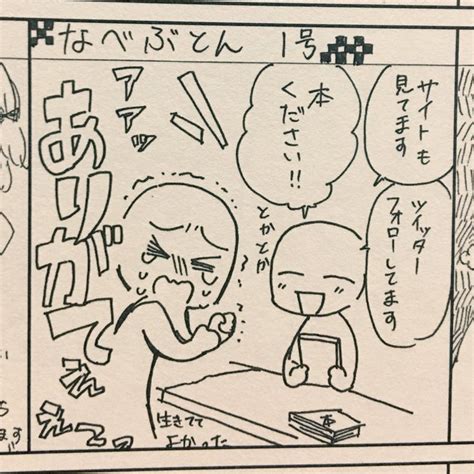 なべぶとん 1号
サイトも
見てます
ツイッター
フォローしてます
本
ください!!
とかとか
アァ
アァッ
ありがてぇぇ
えってっ
生きてて
よかった
本